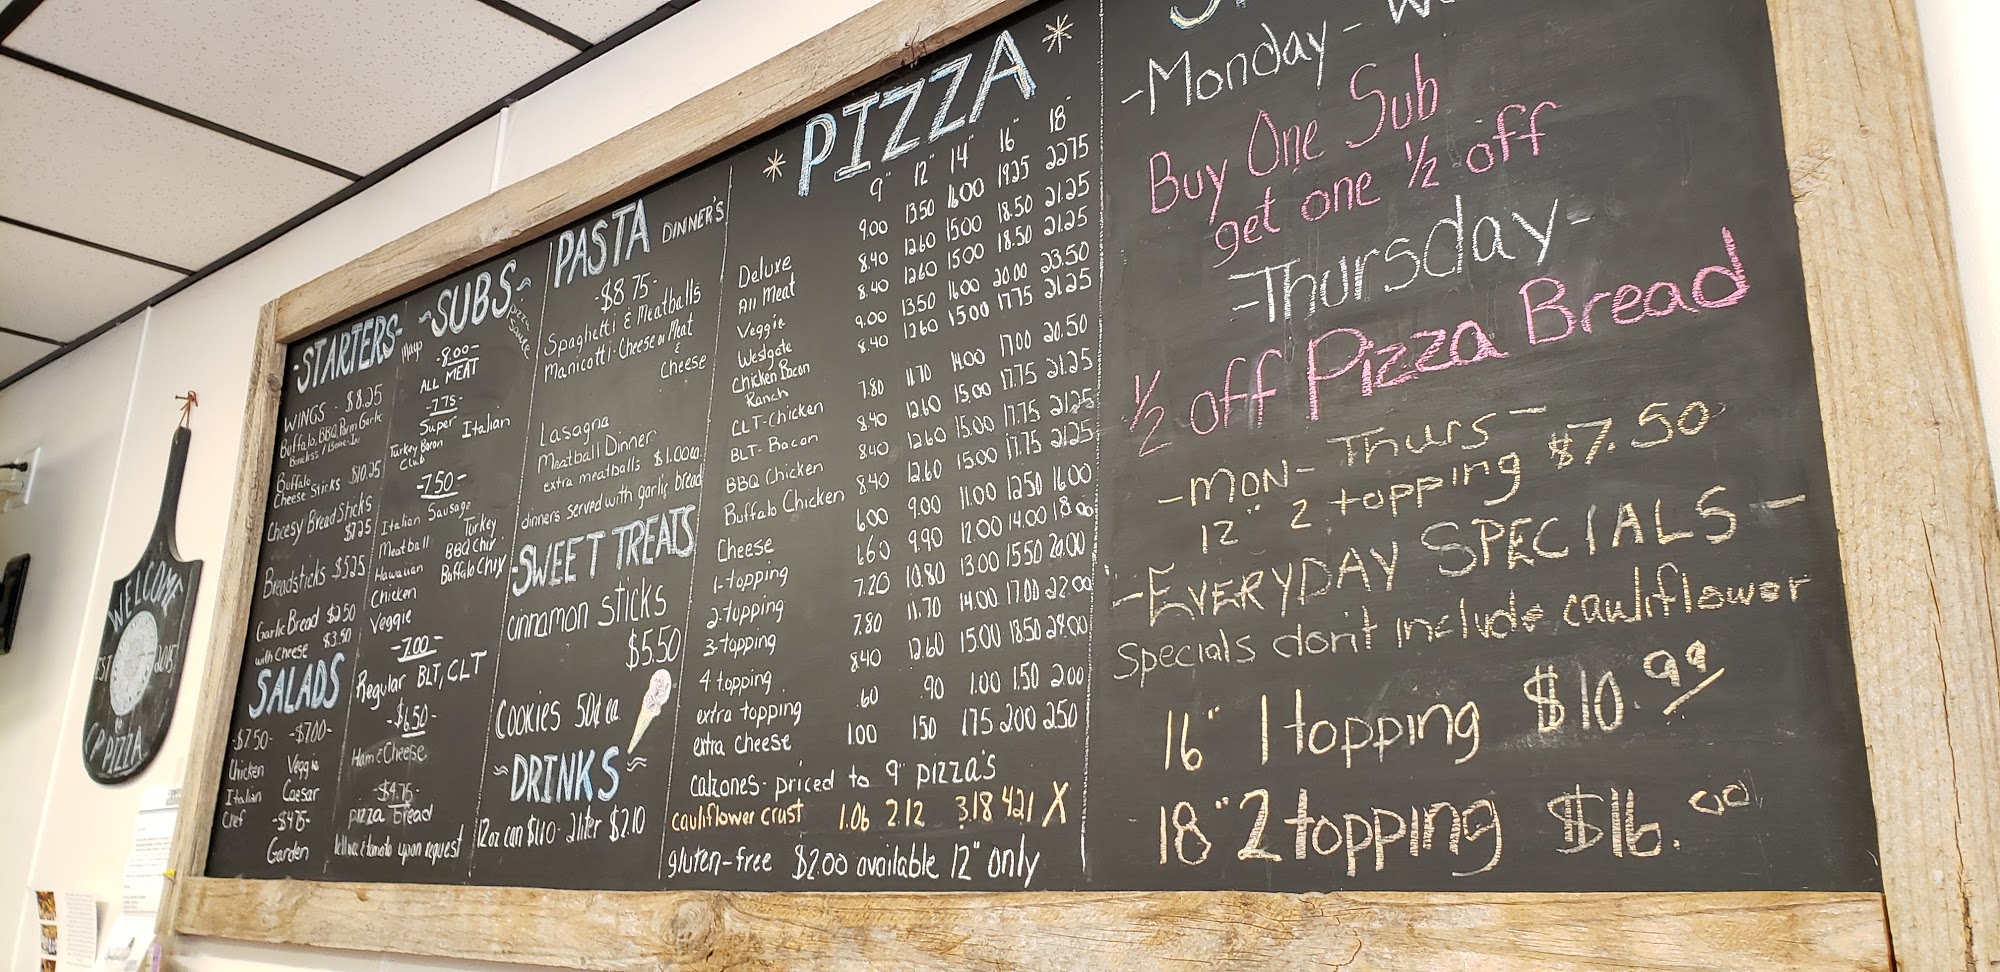 WELCOME
EST 2015
CP PIZZA
-STARTERS-
WINGS - $8.25
Buffalo, BBQ, Parm Garlic
Boneless / Bone-In
Buffalo
Cheese Sticks $10.25
Cheesy Bread Sticks
$7.25
Breadsticks $5.25
Garlic Bread $2.50
with Cheese $3.50
SALADS
-$7.50- -$7.00-
Chicken Veggie
Italian Caesar
Chef -$4.75-
Garden
~SUBS~
mayo
pizza sauce
-8.00-
ALL MEAT
-7.75-
Super Italian
Turkey Bacon
Club
-7.50-
Italian Sausage
Meatball Turkey
Hawaiian BBQ Chix
Chicken Buffalo Chix
Veggie
-7.00-
Regular BLT, CLT
-$6.50-
Ham & Cheese
-$4.75-
pizza bread
lettuce & tomato upon request
PASTA DINNER'S
-$8.75-
Spaghetti & Meatballs
Manicotti-Cheese or Meat
& Cheese
Lasagna
Meatball Dinner
extra meatballs $1.00ea.
dinners served with garlic bread
SWEET TREATS
cinnamon sticks
$5.50
Cookies 50¢ ea
~DRINKS~
12oz can $1.10 2liter $2.10
* PIZZA *
9" 12" 14" 16" 18"
Deluxe 9.00 13.50 16.00 19.25 22.75
All Meat 8.40 12.60 15.00 18.50 21.25
Veggie 8.40 12.60 15.00 18.50 21.25
Westgate 9.00 13.50 16.00 20.00 23.50
Chicken Bacon 8.40 12.60 15.00 17.75 21.25
Ranch
CLT-Chicken 7.80 11.70 14.00 17.00 20.50
BLT-Bacon 8.40 12.60 15.00 17.75 21.25
BBQ Chicken 8.40 12.60 15.00 17.75 21.25
Buffalo Chicken 8.40 12.60 15.00 17.75 21.25
Cheese 6.00 9.00 11.00 12.50 16.00
1-topping 6.60 9.90 12.00 14.00 18.00
2-topping 7.20 10.80 13.00 15.50 20.00
3-topping 7.80 11.70 14.00 17.00 22.00
4 topping 8.40 12.60 15.00 18.50 24.00
extra topping .60 .90 1.00 1.50 2.00
extra cheese 1.00 1.50 1.75 2.00 2.50
calzones- priced to 9" pizza's
cauliflower crust 1.06 2.12 3.18 4.21 X
gluten-free $2.00 available 12" only
-Monday-
Buy One Sub
get one 1/2 off
-Thursday-
1/2 off Pizza Bread
-MON-Thurs-
12" 2 topping $7.50
-EVERYDAY SPECIALS-
Specials don't include cauliflower
16" 1 topping $10.99
18" 2 topping $16.00